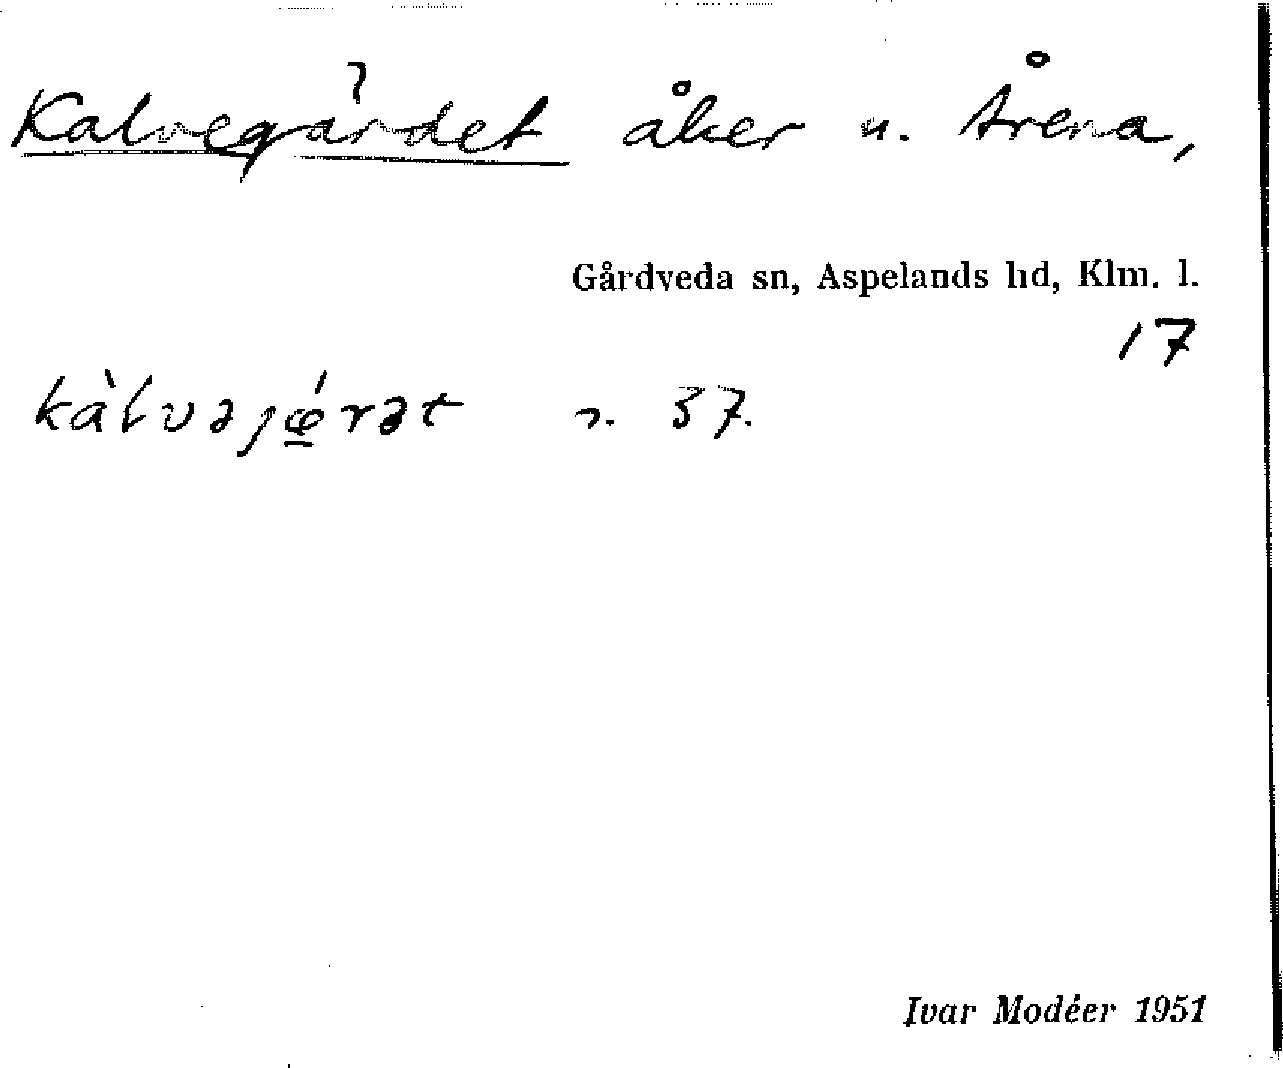 Kalvegärdet åker u. Årena,
Gårdveda sn, Aspelands hd, Klm. l.
17
kàlvəjœ́rət n. 37.
Ivar Modéer 1951